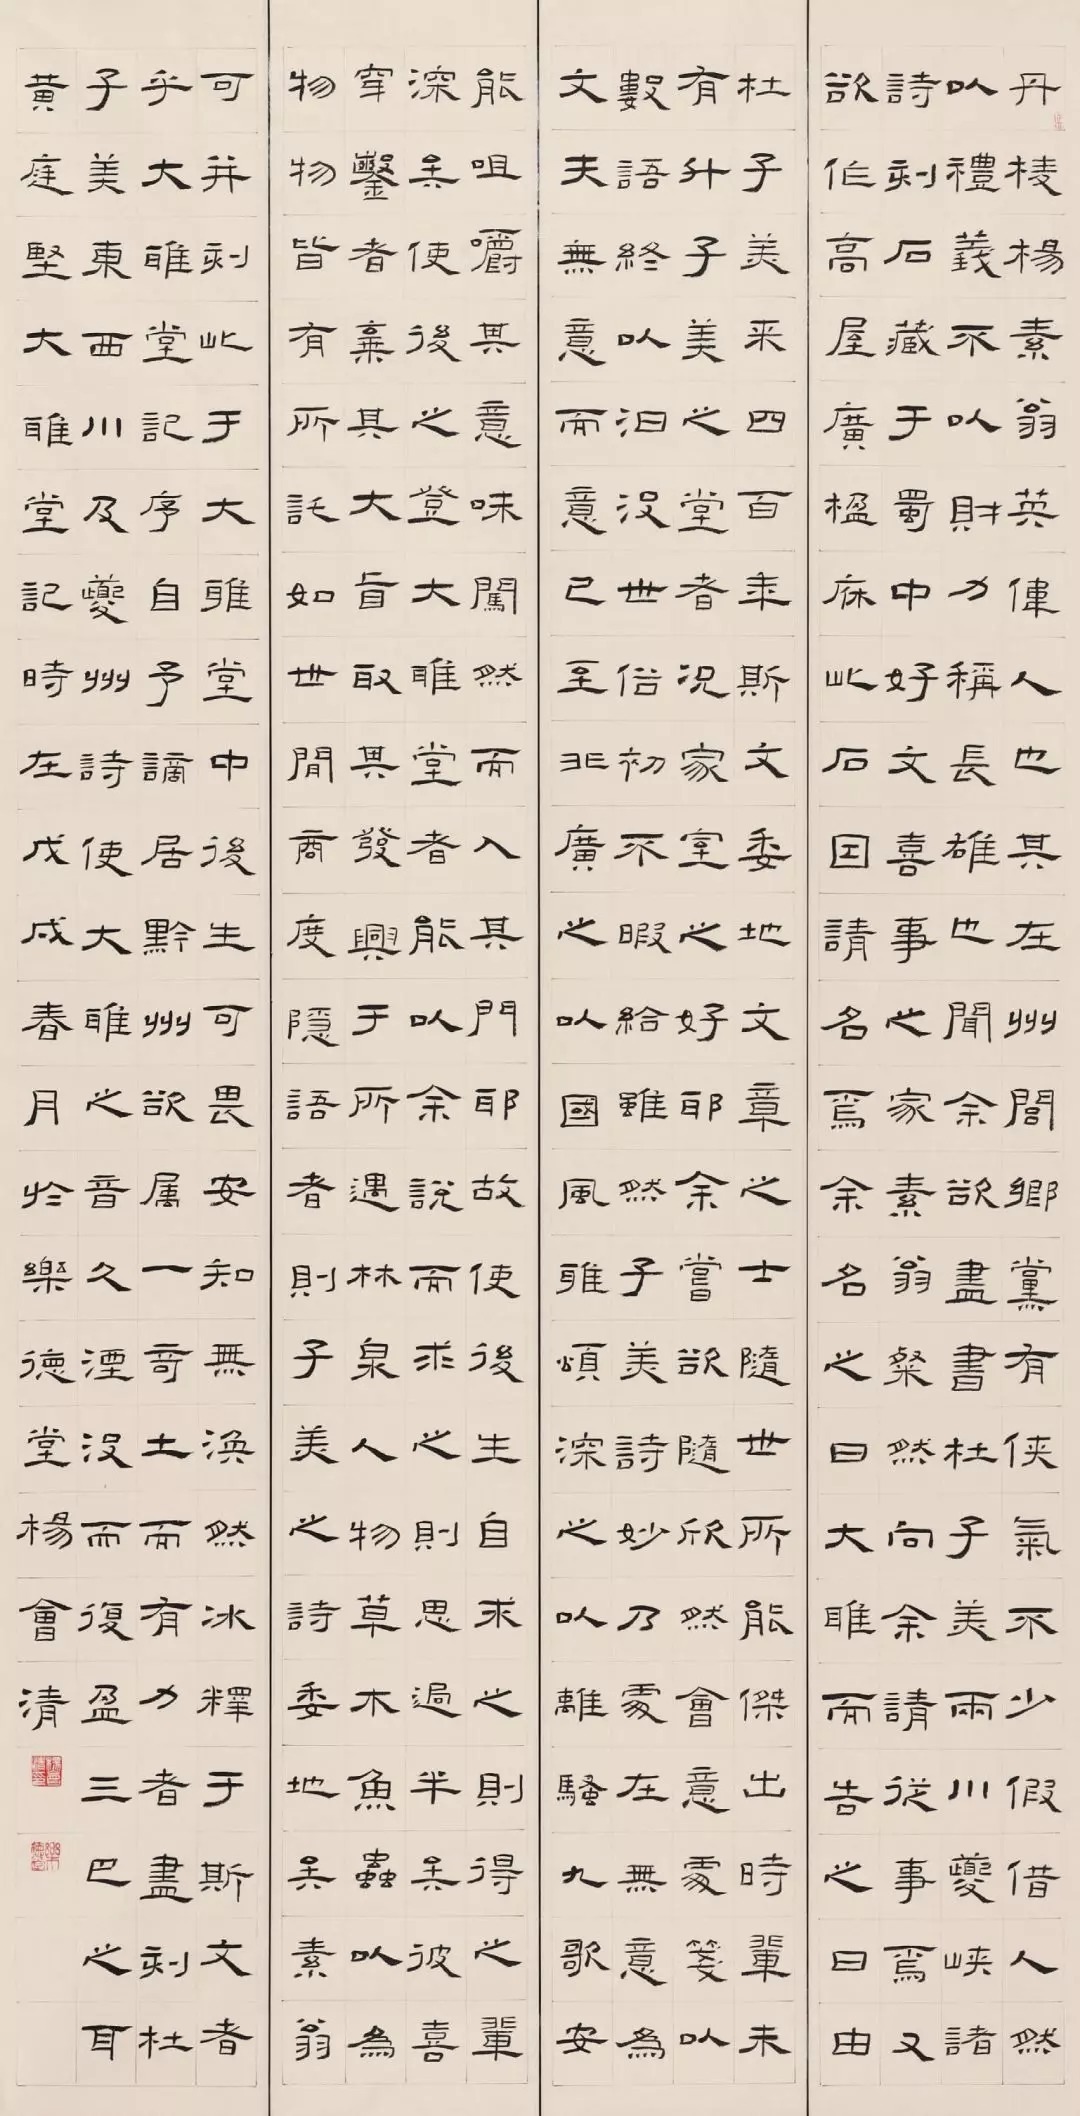 丹棱楊素翁英偉人也其在州閭鄉黨有俠氣不少假借人然
以禮義不以財力稱長雄也聞余欲盡書杜子美兩川夔峽諸
詩刻石藏于蜀中好文喜事之家素翁粲然向余請從事焉又
欲作高屋廣楹庥此石因請名焉余名之曰大雅而告之曰由
杜子美来四百年斯文委地文章之士隨世所能傑出時輩未
有升子美之堂者況家室之好耶余嘗欲隨欣然會意處箋以
數語終以汩没世俗初不暇給雖然子美詩妙乃處在無意為
文夫無意而意已至非廣之以國風雅頌深之以離騷九歌安
能咀嚼其意味闖然而入其門耶故使後生自求之則得之輩
深矣使後之登大雅堂者能以余說而求之則思過半矣彼喜
穿鑿者棄其大旨取其發興于所遇林泉人物草木魚蟲以為
物物皆有所託如世間商度隱語者則子美之詩委地矣素翁
可并刻此于大雅堂中後生可畏安知無渙然冰釋于斯文者
乎大雅堂記序自予謫居黔州欲属一奇士而有力者盡刻杜
子美東西川及夔州詩使大雅之音久湮没而復盈三巴之耳
黄庭堅大雅堂記時在戊戌春月於樂德堂楊會清